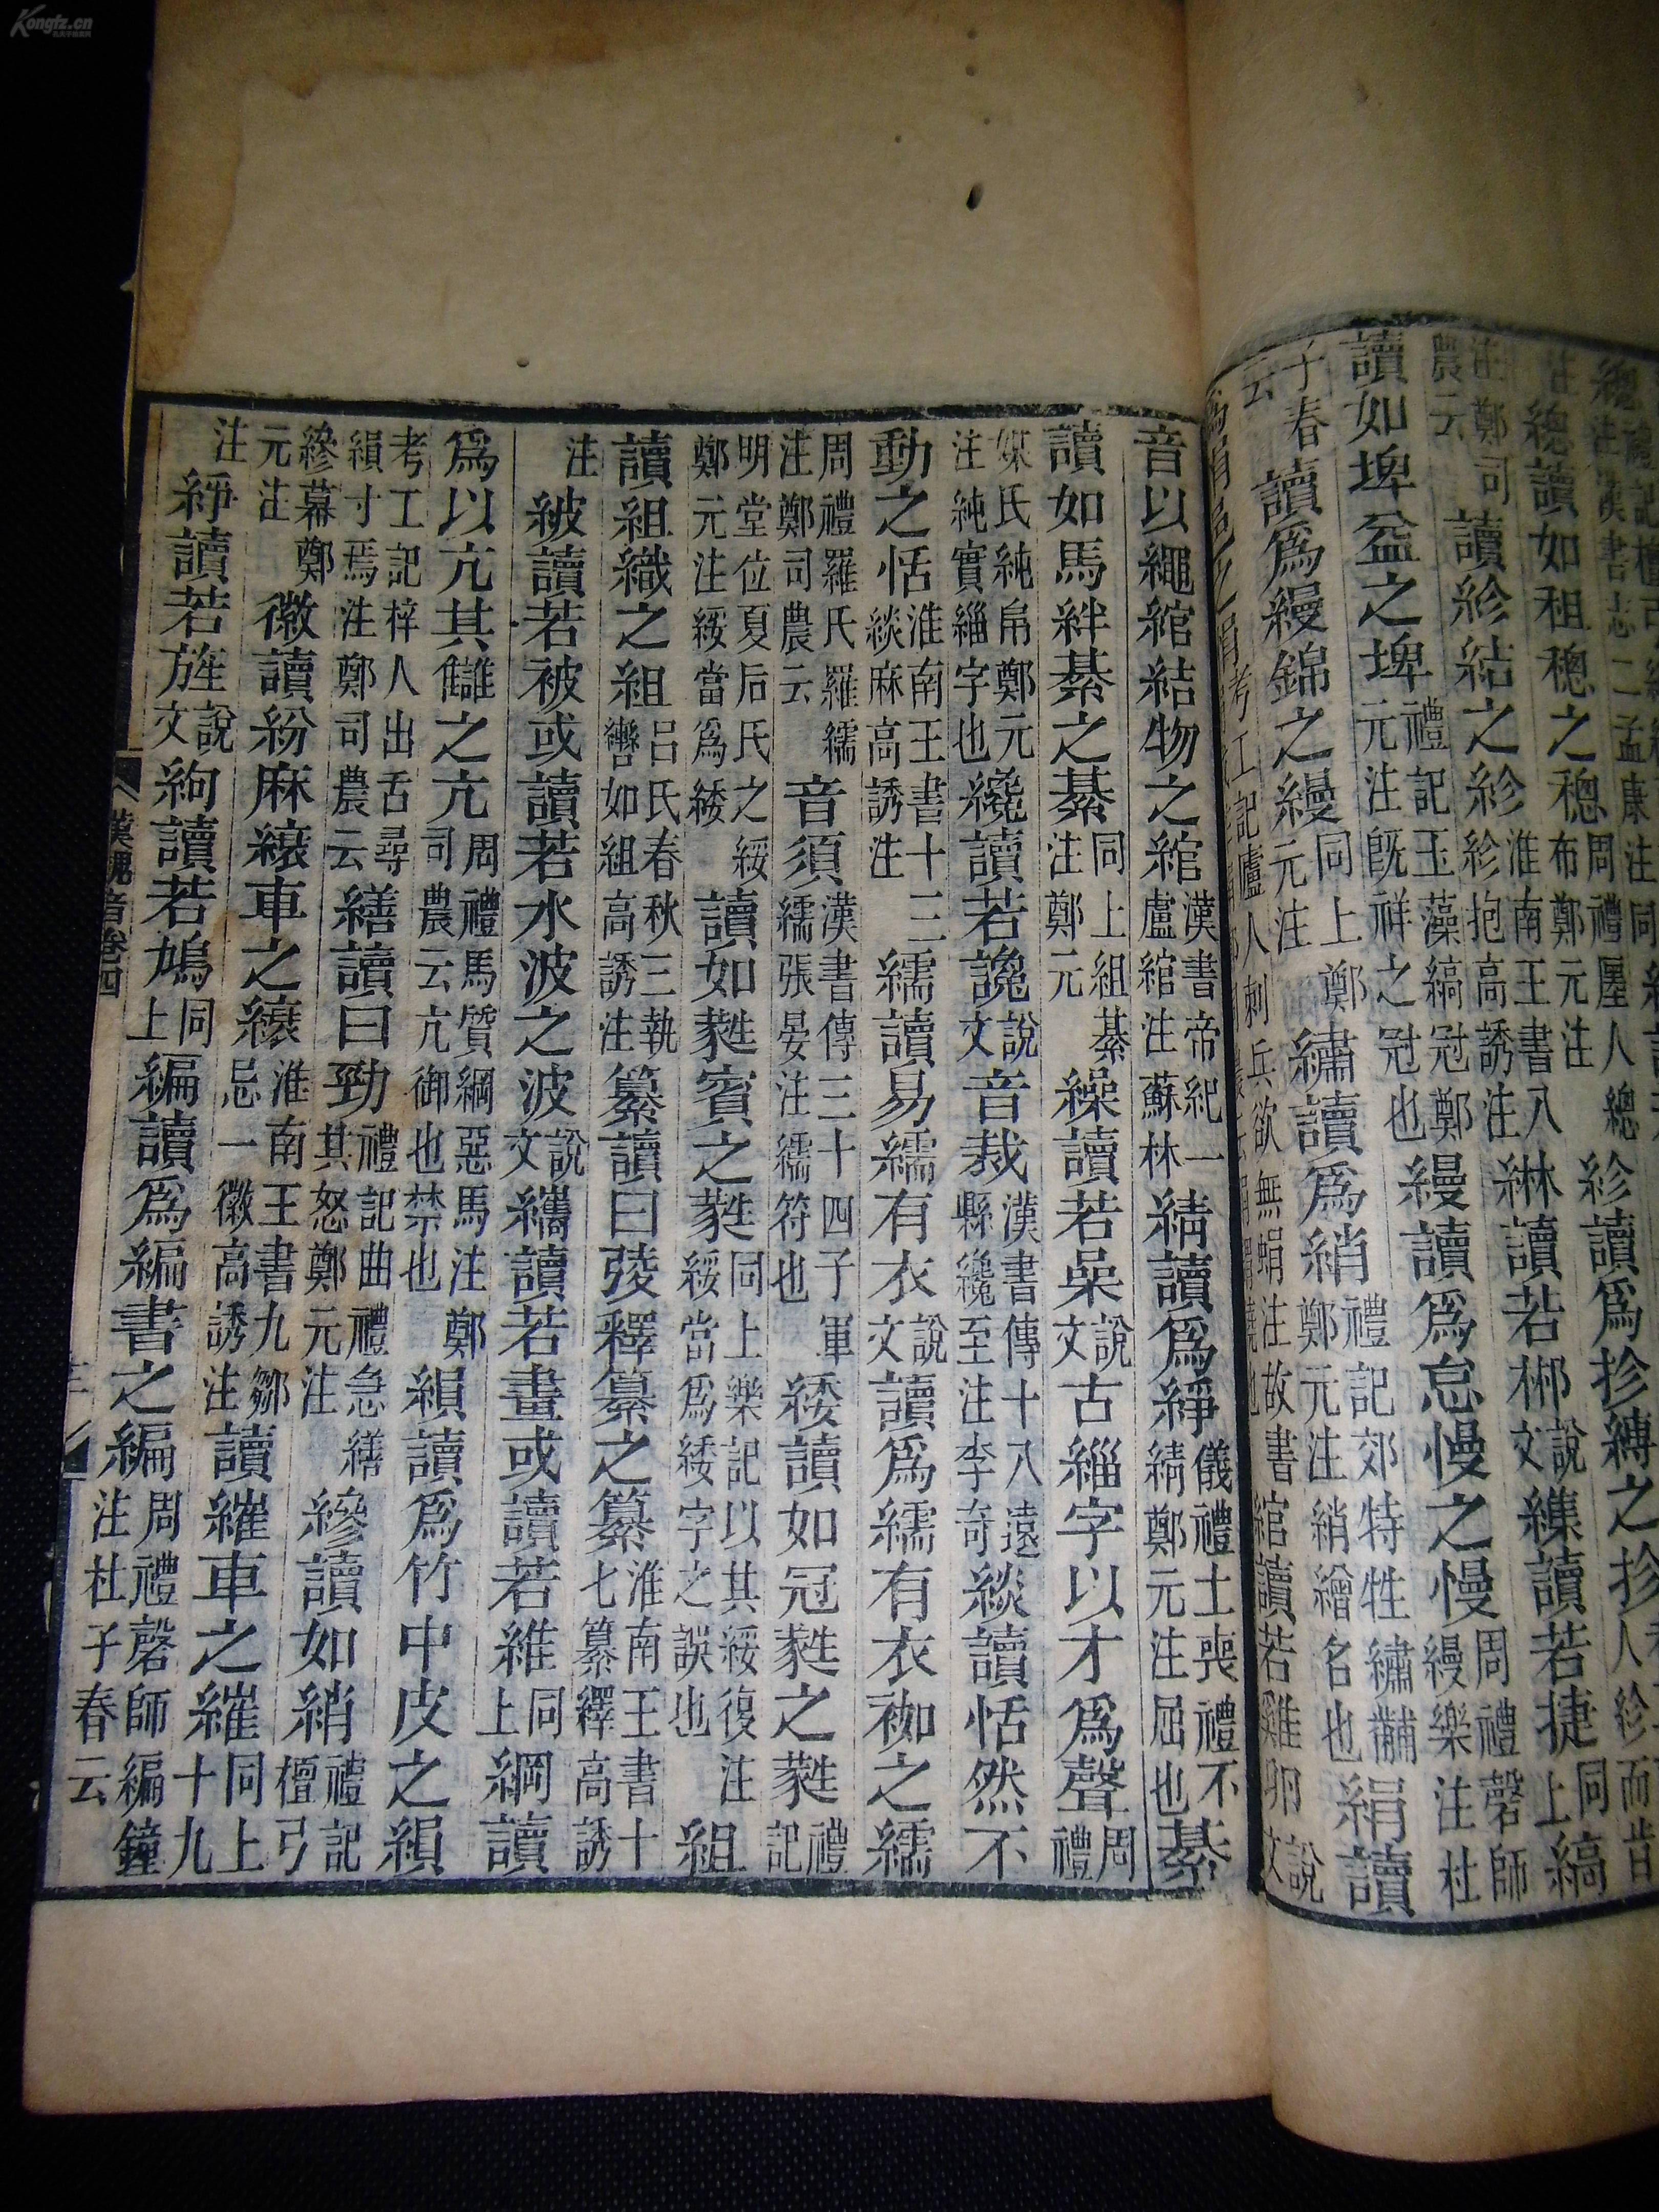 總讀如租稯之稯周禮廛人總布鄭元注紾讀爲抮縛之抮
注鄭司農云讀紾結之紾淮南王書八紾抱高誘注綝讀若郴說文緁讀若捷同上縞
讀如埤益之埤禮記玉藻縞冠鄭元注既祥之冠也縵讀爲怠慢之慢周禮磬師縵樂注杜
子春云讀爲縵錦之縵同上鄭元注繡讀爲綃禮記郊特牲繡黼鄭元注綃繒名也絹讀
考工記廬人刺兵欲無蜎注故書綰讀若雞卵說文
音以繩綰結物之綰漢書帝紀一盧綰注蘇林綪讀爲䋫儀禮士喪禮不綪鄭元注屈也綦
讀如馬絆綦之綦同上組綦注鄭元繰讀若喿說文古緇字以才爲聲周禮
媒氏純帛鄭元注純實緇字也纔讀若讒說文音裁漢書傳十八遠縣纔至注李奇緂讀恬然不
動之恬淮南王書十三緂麻高誘注繻讀易繻有衣說文讀爲繻有衣袽之繻
周禮羅氏羅繻注鄭司農云音須漢書傳三十四子軍繻張晏注繻符也緌讀如冠蕤之蕤禮記
明堂位夏后氏之綏鄭元注綏當爲緌讀如蕤賓之蕤同上樂記以其綏復注綏當爲緌字之誤也組
讀組織之組呂氏春秋三執轡如組高誘注纂讀曰釋纂之纂淮南王書十七纂繹高誘
注紴讀若被或讀若水波之波說文纗讀若畫或讀若維同上綱讀
爲以亢其讎之亢周禮馬質綱惡馬注鄭司農云亢御也禁也縜讀爲竹中皮之縜
考工記梓人出舌尋縜寸焉注鄭司農云繕讀曰勁禮記曲禮急繕其怒鄭元注縿讀如綃禮記檀弓
縿幕鄭元注徽讀紛麻縗車之縗淮南王書九鄒忌一徽高誘注讀繀車之繀同上十九
注絣讀若旌說文絇讀若鳩同上編讀爲編書之編周禮磬師編鐘注杜子春云
漢魏音卷四
Kongfz.cn